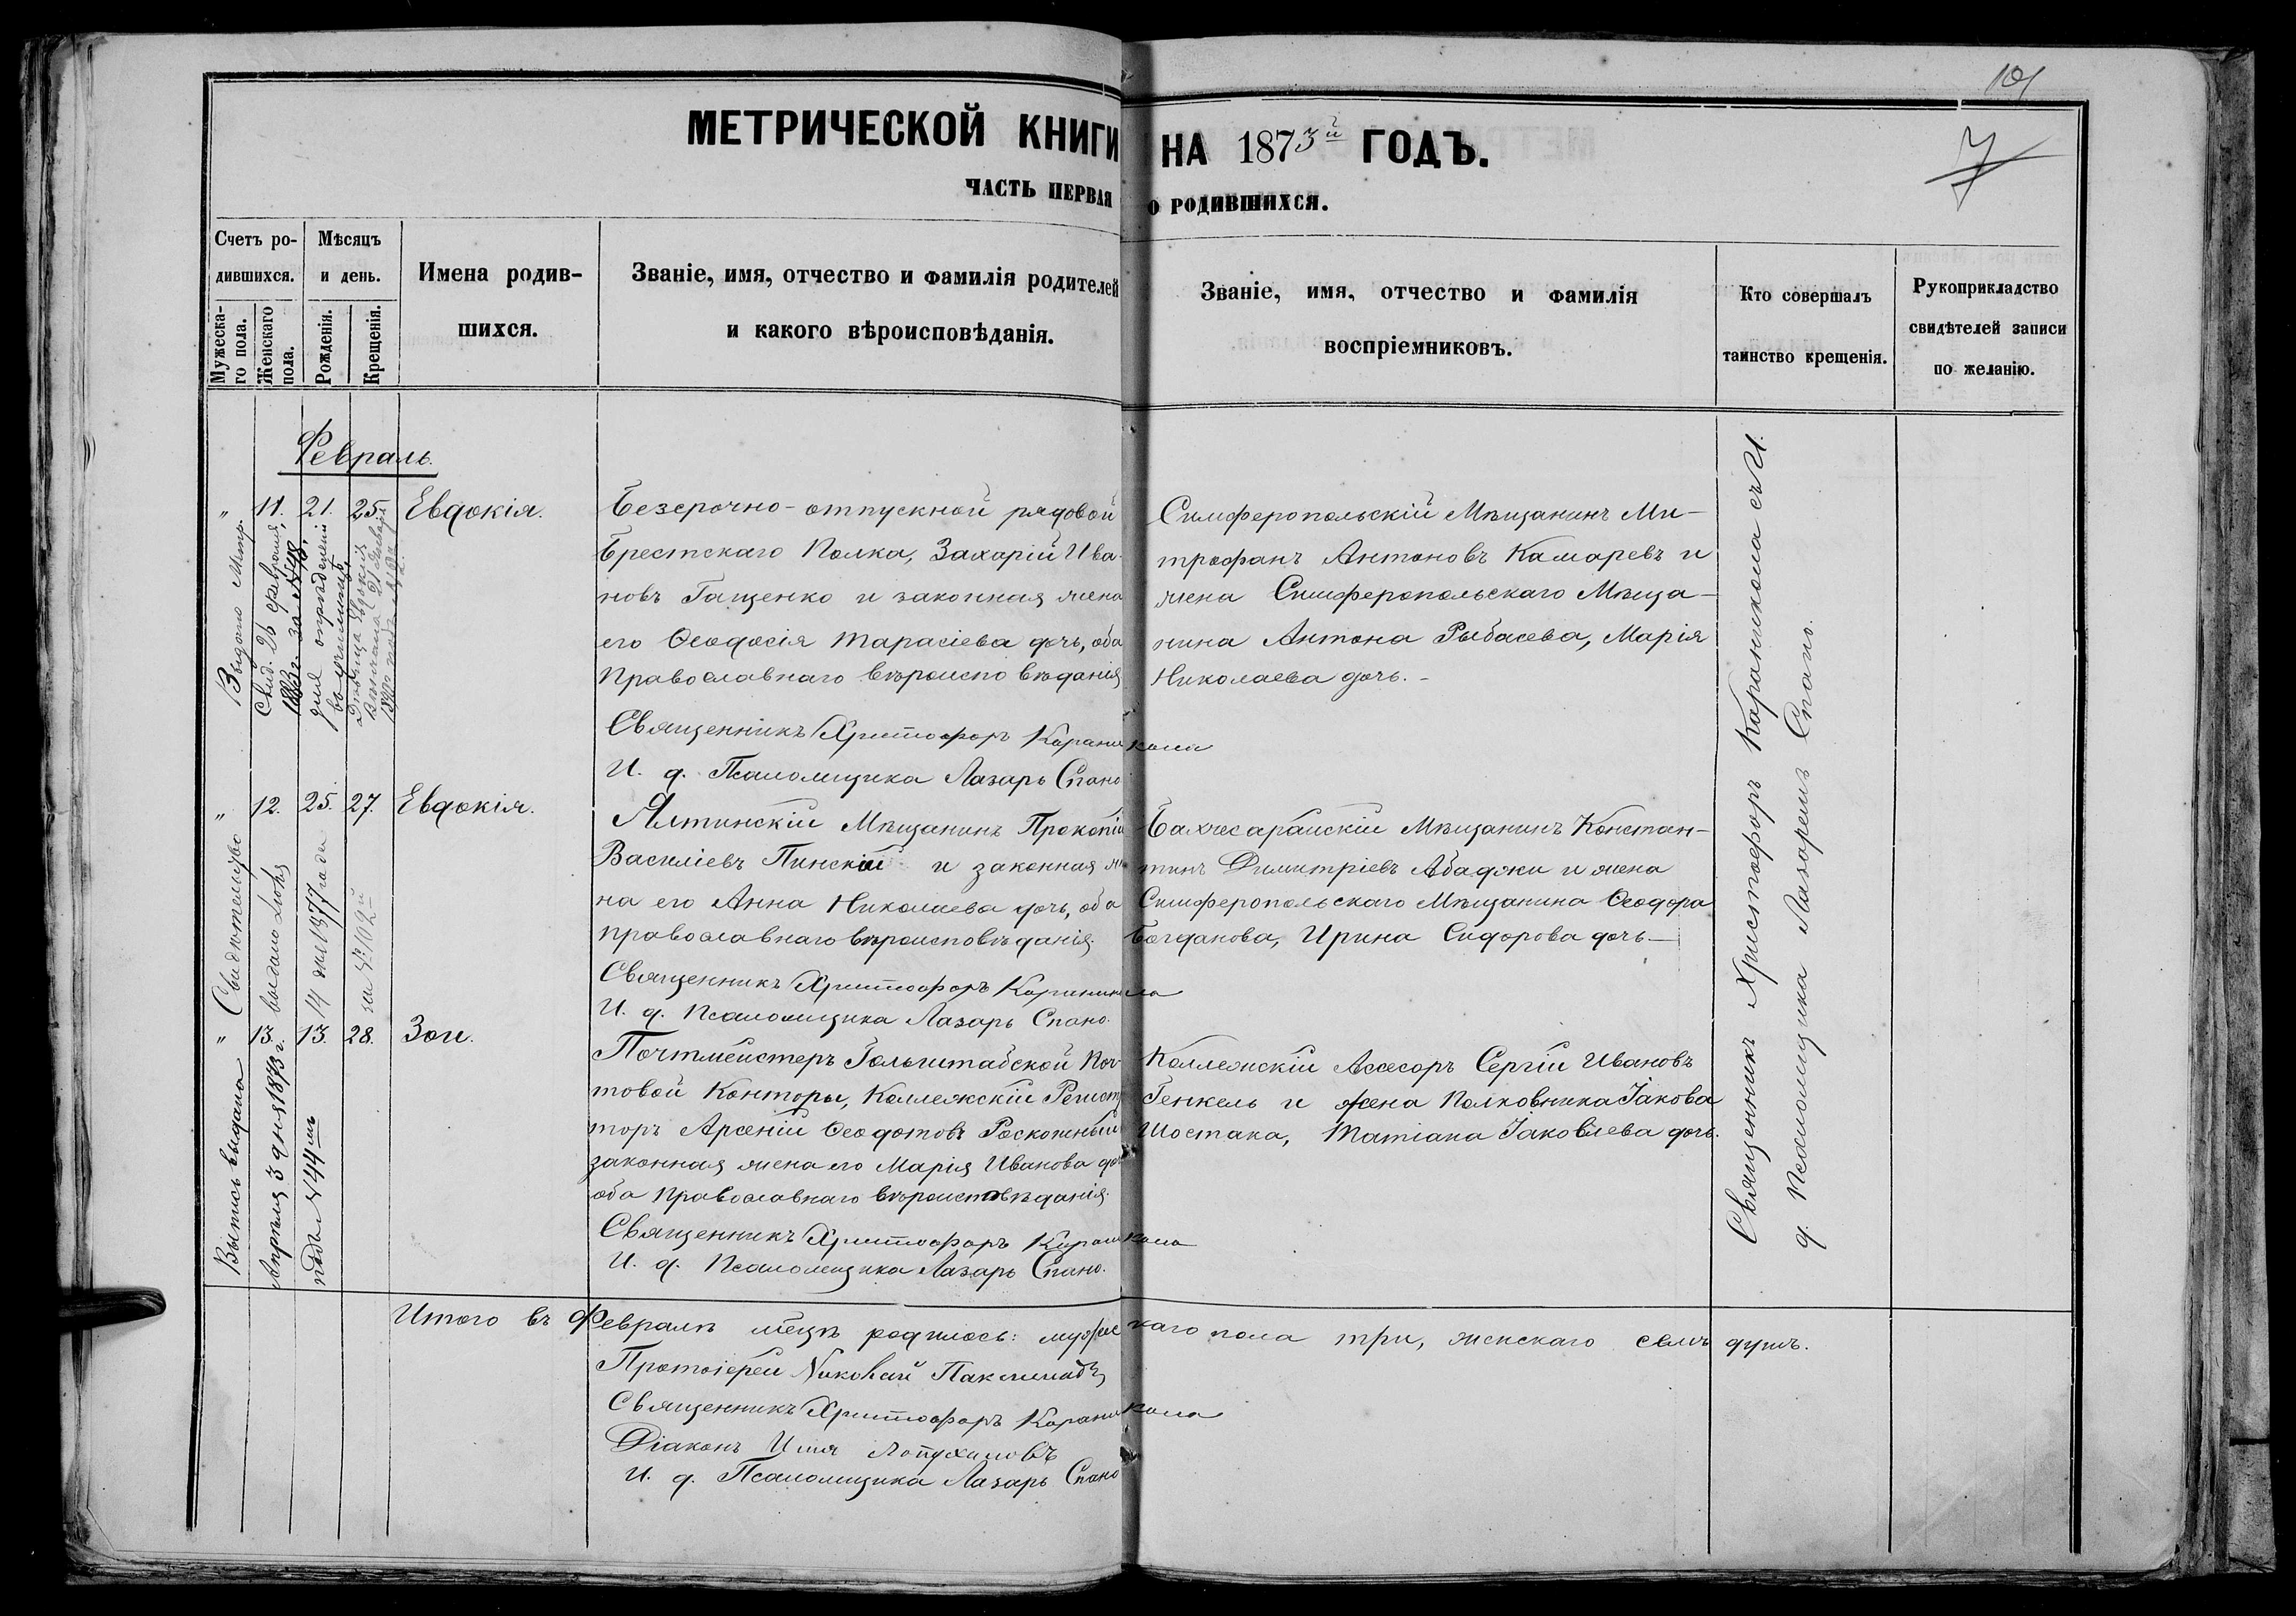 101
7
МЕТРИЧЕСКОЙ КНИГИ НА 1873й ГОДЪ.
ЧАСТЬ ПЕРВАЯ О РОДИВШИХСЯ.
Счетъ родившихся.
Мужескаго пола.
Женскаго пола.
Мѣсяцъ и день.
Рожденія.
Крещенія.
Имена родившихся.
Званіе, имя, отчество и фамилія родителей
и какого вѣроисповѣданія.
Званіе, имя, отчество и фамилія
воспріемниковъ.
Кто совершалъ
таинство крещенія.
Рукоприкладство
свидѣтелей записи
по желанію.
Февраль.
" 11. 21. 25. Евдокія.
Безсрочно-отпускной рядовой
Брестскаго Полка, Захарій Ива-
новъ Гащенко и законная жена
его Ѳеодосія Тарасіева дочь, оба
Православнаго вѣроисповѣданія
Священникъ Христофоръ Караникола
И. д. Псаломщика Лазарь Спано
Симферопольскій Мѣщанинъ Ми-
трофанъ Антоновъ Камаревъ и
жена Симферопольскаго Мѣща-
нина Антона Рыбасева, Марія
Николаева дочь.-
Выдано Метр.
Свид. 26 февраля
1883г за №48
для опредѣленія
въ училище
Дѣвица Евдокія
Вѣнчана 21 Января
" 12. 25. 27. Евдокія.
Ялтинскій Мѣщанинъ Прокопій
Василіевъ Пинскій и законная же-
на его Анна Николаева дочь, оба
православнаго вѣроисповѣданія.
Священникъ Христофоръ Караникола
И. д. Псаломщика Лазарь Спано.
Бахчесарайскій Мѣщанинъ Констан-
тинъ Димитріевъ Абаджи и жена
Симферопольскаго Мѣщанина Ѳеодора
Богданова, Ирина Сидорова дочь—
Свидѣтельство
выдано
14 дня 1877 года
за №102й
" 13. 13. 28. Зои.
Почтмейстеръ Гольштабской Поч-
товой Конторы, Коллежскій Регист
торъ Арсеній Ѳеодотовъ Роскошный
законная жена его Марія Иванова доч
оба православнаго вѣроисповѣданія.
Священникъ Христофоръ Караникола
И. д. Псаломщика Лазарь Спано.
Коллежскій Ассесоръ Сергій Ивановъ
Генкель и жена Полковника Іакова
Шостака, Татіана Іаковлева дочь.
Выпись выдана
Апрѣля 3 дня 1873 г.
подъ №144мъ
Священникъ Христофоръ Караникола съ И.
д. Псаломщика Лазаремъ Спано.
Итого въ Февралѣ мѣцѣ родилось: мужескаго пола три, женскаго семь душъ.
Протоіерей Николай
Священникъ Христофоръ Караникола
Діаконъ Илія
И. д. Псаломщика Лазарь Спано